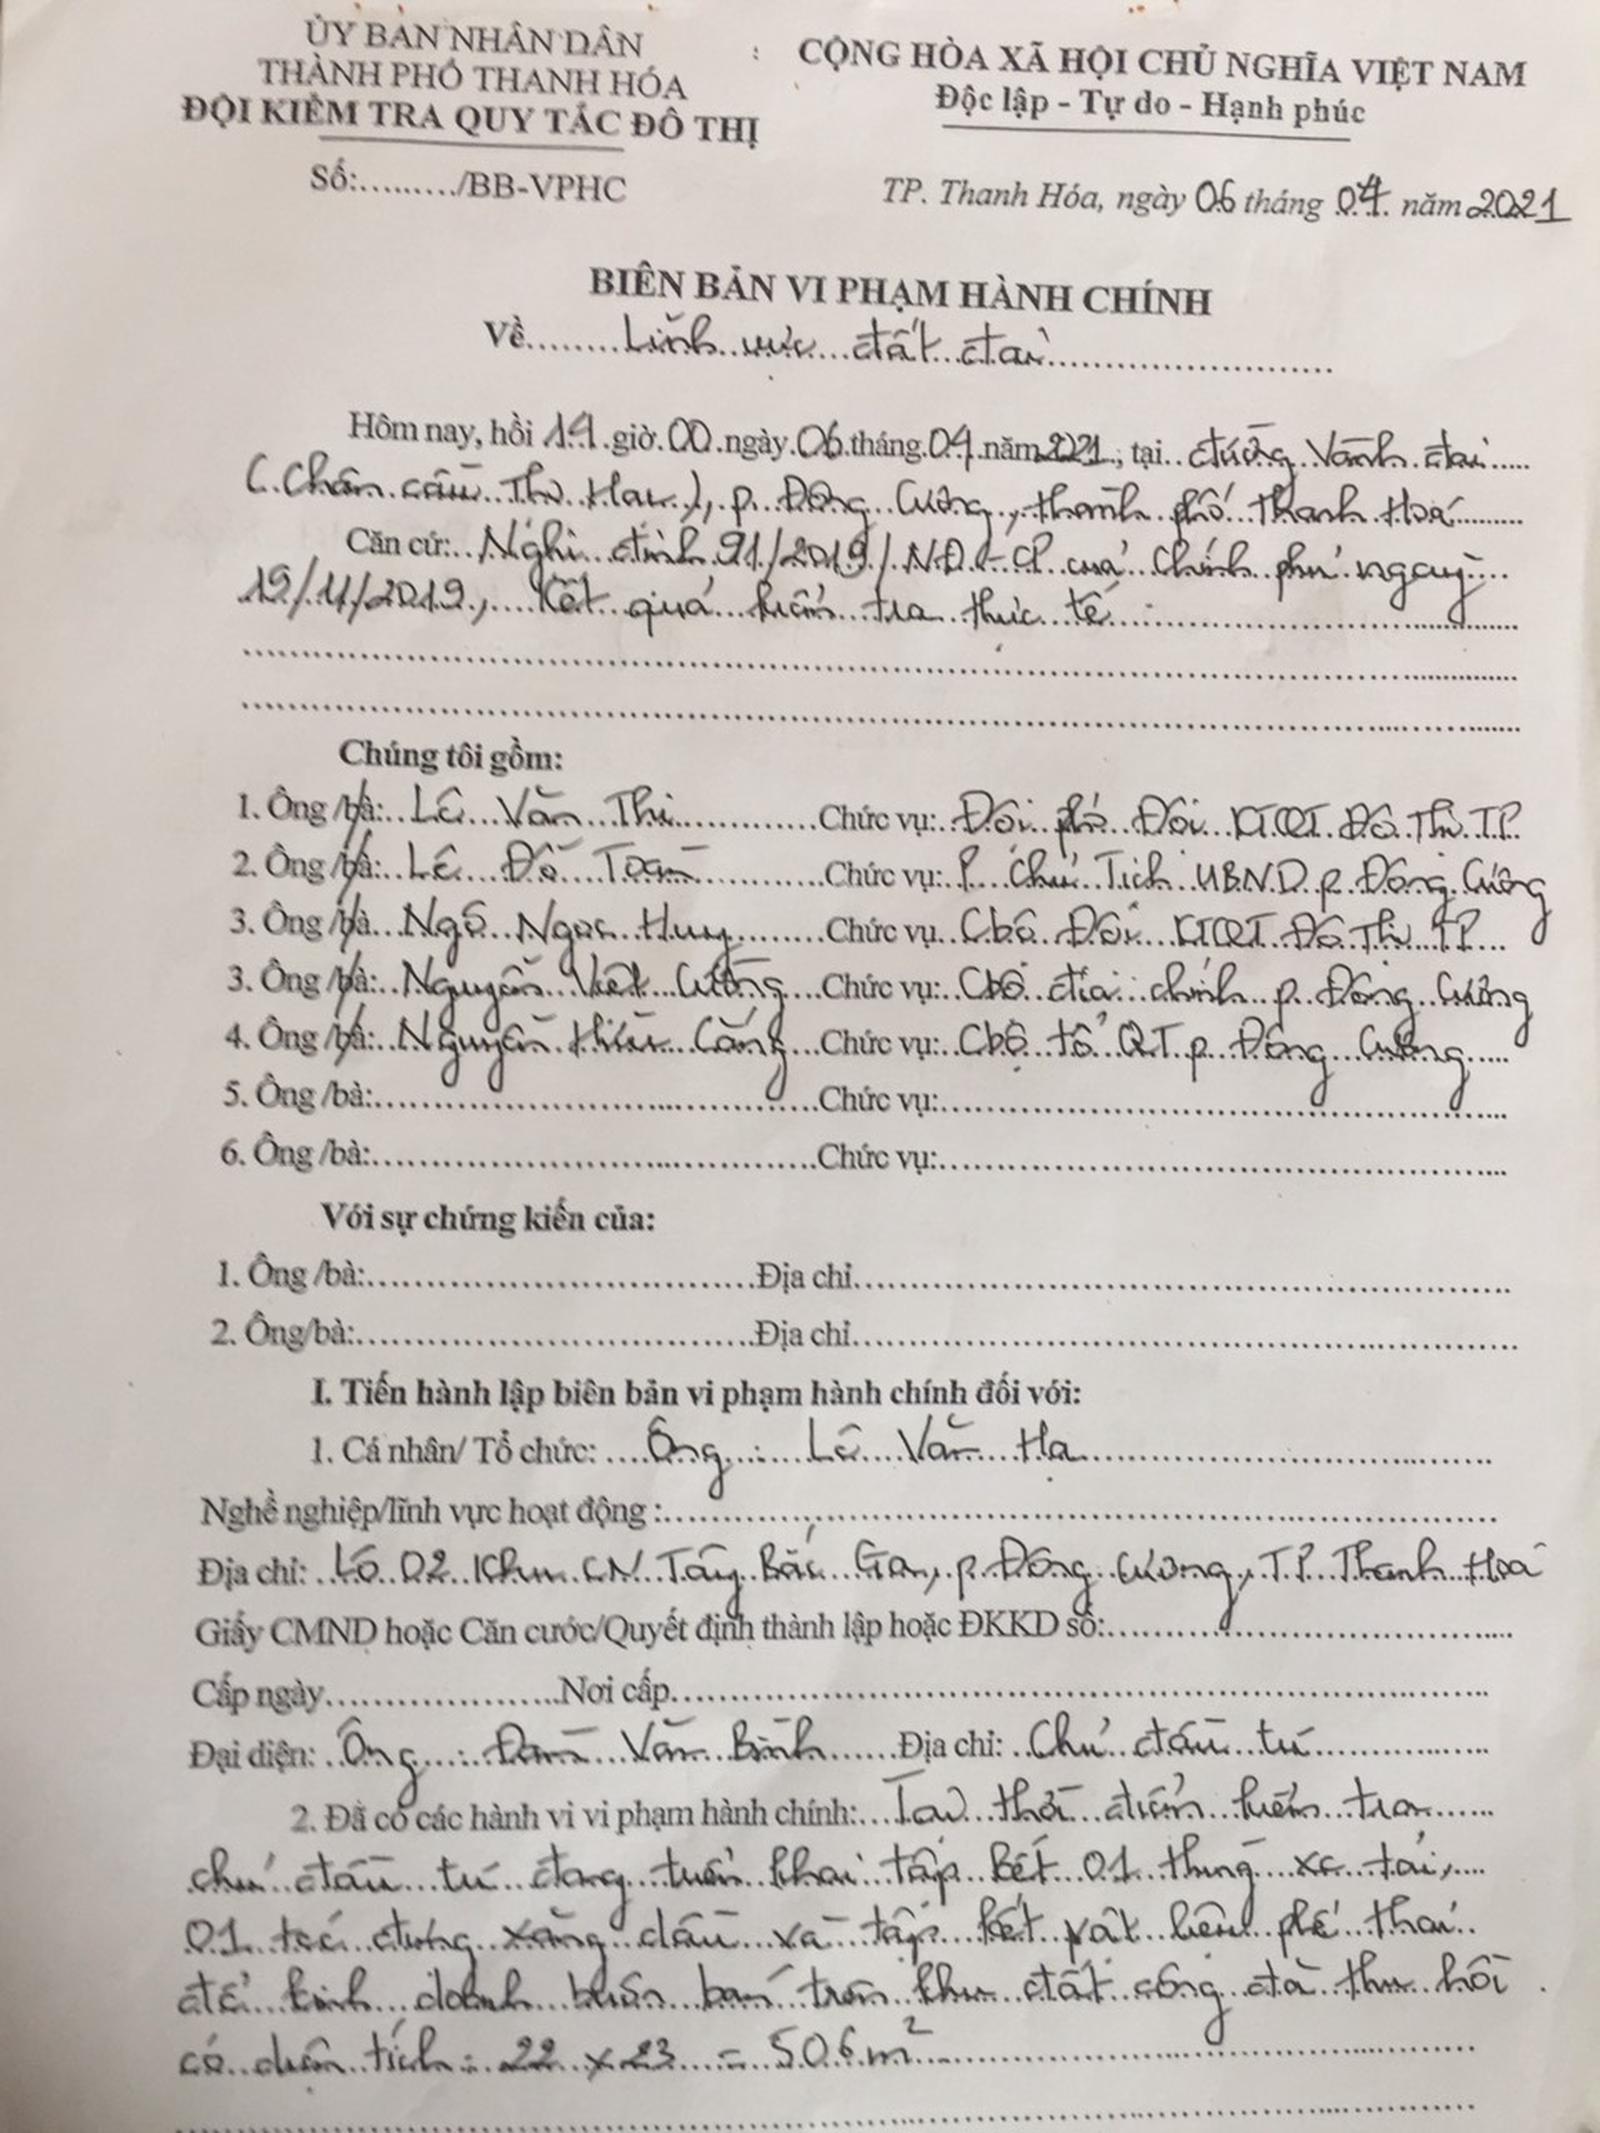 ỦY BAN NHÂN DÂN
THÀNH PHỐ THANH HÓA
ĐỘI KIỂM TRA QUY TẮC ĐÔ THỊ
Số:........./BB-VPHC
CỘNG HÒA XÃ HỘI CHỦ NGHĨA VIỆT NAM
Độc lập - Tự do - Hạnh phúc
TP. Thanh Hóa, ngày 06 tháng 04 năm 2021
BIÊN BẢN VI PHẠM HÀNH CHÍNH
Về........Lĩnh vực đất đai........
Hôm nay, hồi 14 giờ 00 ngày 06 tháng 04 năm 2021, tại đường Vành đai
(Chân cầu), p. Đông Cương, thành phố Thanh Hoá
Căn cứ: Nghị định 91/2019/NĐ-CP của Chính phủ ngày
19/11/2019, Kết quả kiểm tra thực tế
Chúng tôi gồm:
1. Ông /bà: Lê Văn Thi Chức vụ: Đội phó Đội KTQT Đô Thị TP
2. Ông /bà: Lê Đỗ Toàn Chức vụ: P. Chủ Tịch UBND p. Đông Cương
3. Ông /bà Ngô Ngọc Huy Chức vụ Cbộ Đội KTQT Đô Thị TP
3. Ông /bà: Nguyễn Viết Cường Chức vụ: Cbộ địa chính p. Đông Cương
4. Ông /bà: Nguyễn Hữu Cảng Chức vụ: Cbộ tổ QT p Đông Cương
5. Ông /bà:........Chức vụ:........
6. Ông /bà:........Chức vụ:........
Với sự chứng kiến của:
1. Ông /bà:........Địa chỉ........
2. Ông/bà:........Địa chỉ........
I. Tiến hành lập biên bản vi phạm hành chính đối với:
1. Cá nhân/ Tổ chức: Ông : Lê Văn Hạ
Nghề nghiệp/lĩnh vực hoạt động :........
Địa chỉ: Lô 02 Khu CN Tây Bắc Ga, p. Đông Cương, TP. Thanh Hoá
Giấy CMND hoặc Căn cước/Quyết định thành lập hoặc ĐKKD số:........
Cấp ngày........Nơi cấp........
Đại diện: Ông : Đàm Văn Bình Địa chỉ: Chủ đầu tư
2. Đã có các hành vi vi phạm hành chính: Tại thời điểm kiểm tra
chủ đầu tư đang triển khai tập kết 01 thùng xe tải,
01 téc đựng xăng dầu và tập kết vật liệu phế thải
để kinh doanh buôn bán trên khu đất công đã thu hồi
có diện tích: 22 x 23 = 506m²